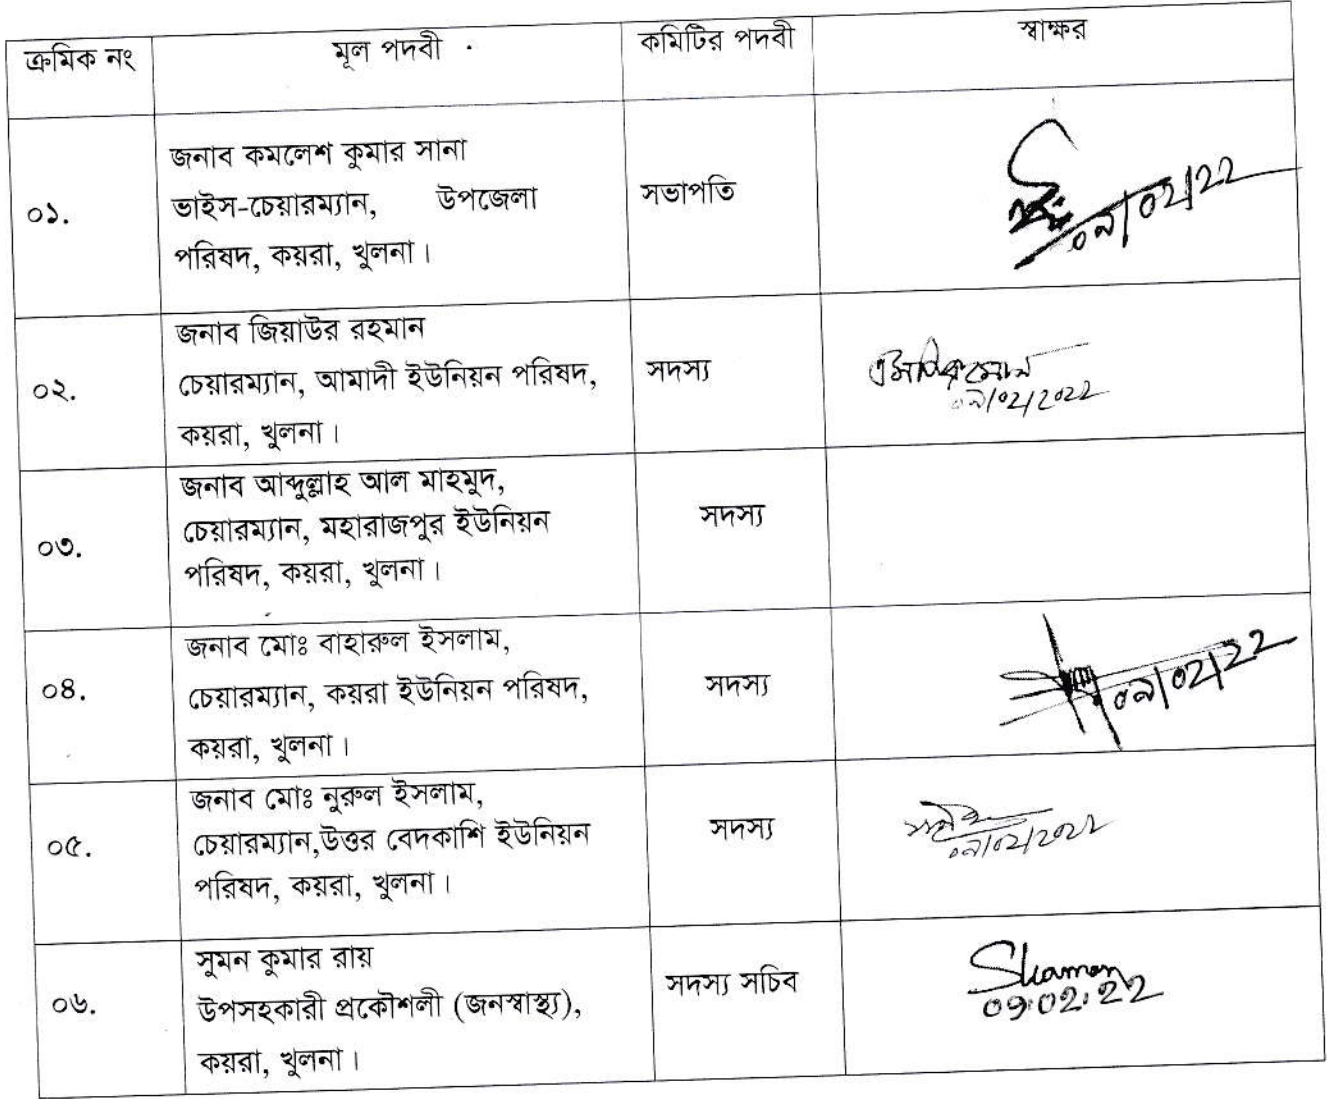 ক্রমিক নং মূল পদবী কমিটির পদবী স্বাক্ষর
০১. জনাব কমলেশ কুমার সানা
ভাইস-চেয়ারম্যান, উপজেলা
পরিষদ, কয়রা, খুলনা।
সভাপতি
০৯/০২/22
০২. জনাব জিয়াউর রহমান
চেয়ারম্যান, আমাদী ইউনিয়ন পরিষদ,
কয়রা, খুলনা।
সদস্য
০৯/০২/২০২২
০৩. জনাব আব্দুল্লাহ আল মাহমুদ,
চেয়ারম্যান, মহারাজপুর ইউনিয়ন
পরিষদ, কয়রা, খুলনা।
সদস্য
০৪. জনাব মোঃ বাহারুল ইসলাম,
চেয়ারম্যান, কয়রা ইউনিয়ন পরিষদ,
কয়রা, খুলনা।
সদস্য
০৯/০২/22
০৫. জনাব মোঃ নুরুল ইসলাম,
চেয়ারম্যান,উত্তর বেদকাশি ইউনিয়ন
পরিষদ, কয়রা, খুলনা।
সদস্য
০৯/০২/২০২২
০৬. সুমন কুমার রায়
উপসহকারী প্রকৌশলী (জনস্বাস্থ্য),
কয়রা, খুলনা।
সদস্য সচিব
09.02.22